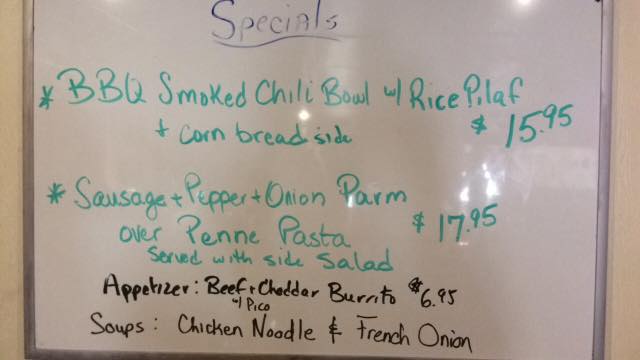 Specials
* BBQ Smoked Chili Bowl w/ Rice Pilaf
+ corn bread side $ 15.95
* Sausage + Pepper + Onion Parm
over Penne Pasta $ 17.95
Served with side Salad
Appetizer: Beef + Cheddar Burrito $6.95
w/ Pico
Soups: Chicken Noodle & French Onion